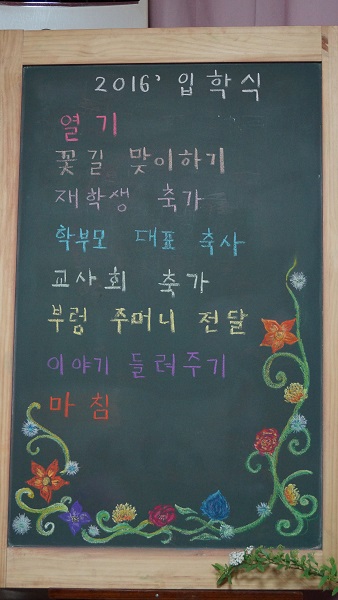 2016' 입학식
열기
꽃길 맞이하기
재학생 축가
학부모 대표 축사
교사회 축가
부럼 주머니 전달
이야기 들려주기
마침